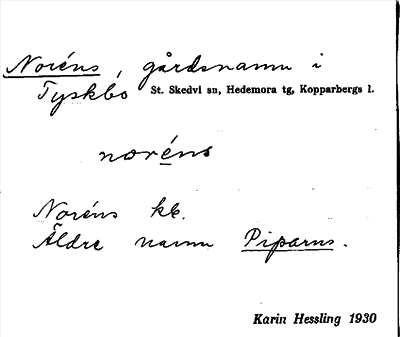 Noréns, gårdsnamn i
Tyskbo St. Skedvi sn, Hedemora tg, Kopparbergs l.
noréns
Noréns kk.
Äldre namn Piparns.
Karin Hessling 1930